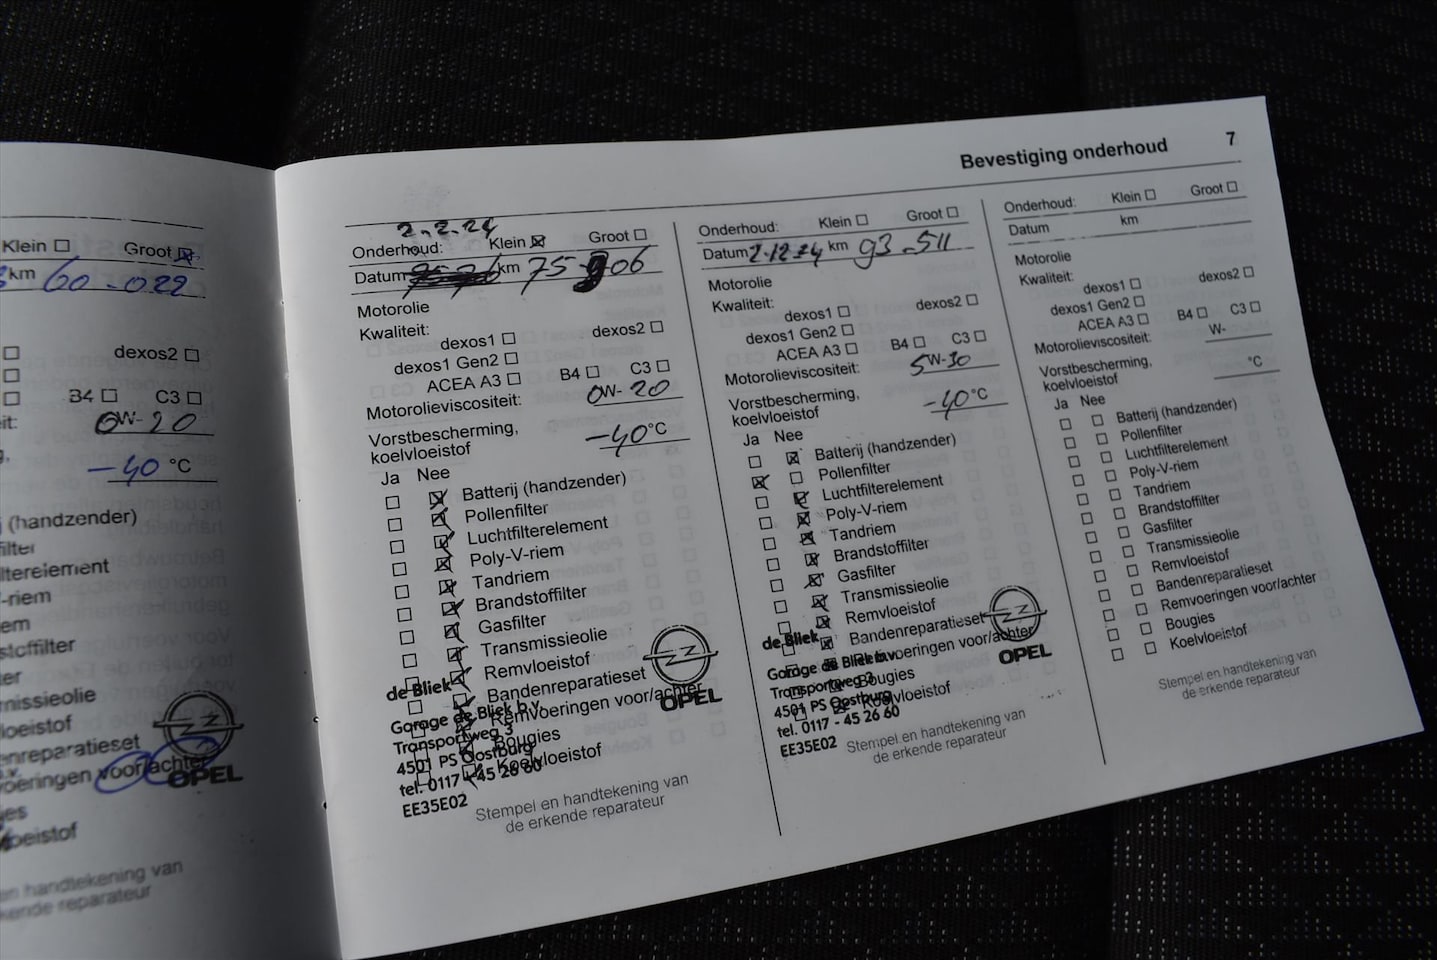 Bevestiging onderhoud 7
Klein Groot
km 60-022
dexos2
B4 C3
0W-20
-40 °C
(handzender)
oeistof
voeringen voor/achter
OPEL
en handtekening van
erkende reparateur
2.2.24
Onderhoud: Klein Groot
Datum km 75 906
Motorolie
Kwaliteit:
dexos1 dexos2
dexos1 Gen2
ACEA A3 B4 C3
Motorolieviscositeit: 0W-20
Vorstbescherming,
koelvloeistof -40 °C
Ja Nee
Batterij (handzender)
Pollenfilter
Luchtfilterelement
Poly-V-riem
Tandriem
Brandstoffilter
Gasfilter
Transmissieolie
Remvloeistof
Bandenreparatieset
Remvoeringen voor/achter
Bougies
Koelvloeistof
de Bliek
Garage de Bliek b.v.
Transportweg 3
4501 PS Oostburg
tel. 0117 - 45 26 60
EE35E02
OPEL
Stempel en handtekening van
de erkende reparateur
Onderhoud: Klein Groot
Datum 2-12-24 km 93-511
Motorolie
Kwaliteit:
dexos1 dexos2
dexos1 Gen2
ACEA A3 B4 C3
Motorolieviscositeit: 5W-30
Vorstbescherming,
koelvloeistof -40 °C
Ja Nee
Batterij (handzender)
Pollenfilter
Luchtfilterelement
Poly-V-riem
Tandriem
Brandstoffilter
Gasfilter
Transmissieolie
Remvloeistof
Bandenreparatieset
Remvoeringen voor/achter
Bougies
Koelvloeistof
de Bliek
Garage de Bliek b.v.
Transportweg 3
4501 PS Oostburg
tel. 0117 - 45 26 60
EE35E02
OPEL
Stempel en handtekening van
de erkende reparateur
Onderhoud: Klein Groot
Datum km
Motorolie
Kwaliteit:
dexos1 dexos2
dexos1 Gen2
ACEA A3 B4 C3
Motorolieviscositeit: W-
Vorstbescherming,
koelvloeistof °C
Ja Nee
Batterij (handzender)
Pollenfilter
Luchtfilterelement
Poly-V-riem
Tandriem
Brandstoffilter
Gasfilter
Transmissieolie
Remvloeistof
Bandenreparatieset
Remvoeringen voor/achter
Bougies
Koelvloeistof
Stempel en handtekening van
de erkende reparateur